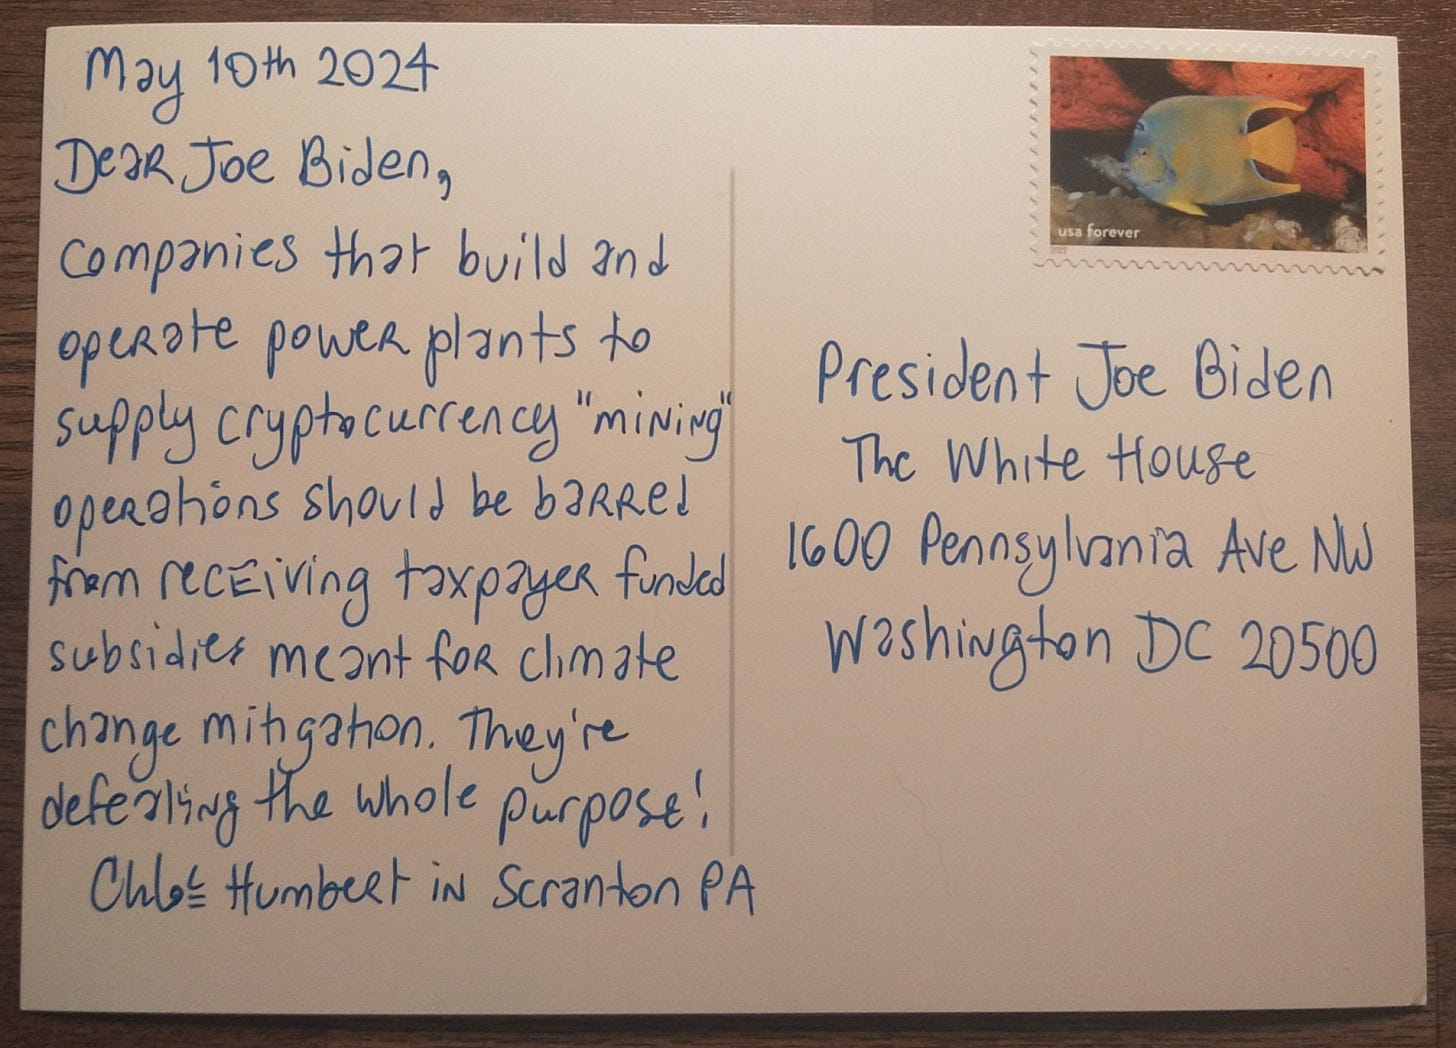 May 10th 2024
Dear Joe Biden,
Companies that build and
operate power plants to
supply cryptocurrency "mining"
operations should be barred
from receiving taxpayer funded
subsidies meant for climate
change mitigation. They're
defeating the whole purpose!
Chloe Humbert in Scranton PA
usa forever
2022
President Joe Biden
The White House
1600 Pennsylvania Ave NW
Washington DC 20500